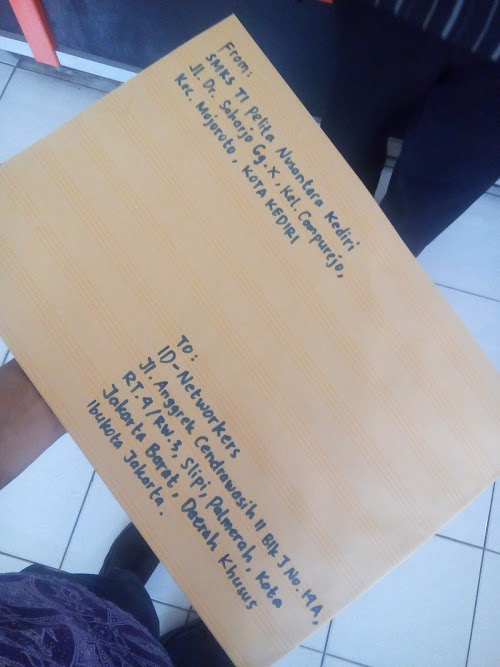 From:
SMKS TI Pelita Nusantara Kediri
Jl. Dr. Saharjo Gg. X, Kel. Campurejo,
Kec. Mojoroto, KOTA KEDIRI
To:
ID-Networkers
Jl. Anggrek Cendrawasih II Blk J No. 19A,
RT.4/RW.3, Slipi, Palmerah, Kota
Jakarta Barat, Daerah Khusus
Ibukota Jakarta.